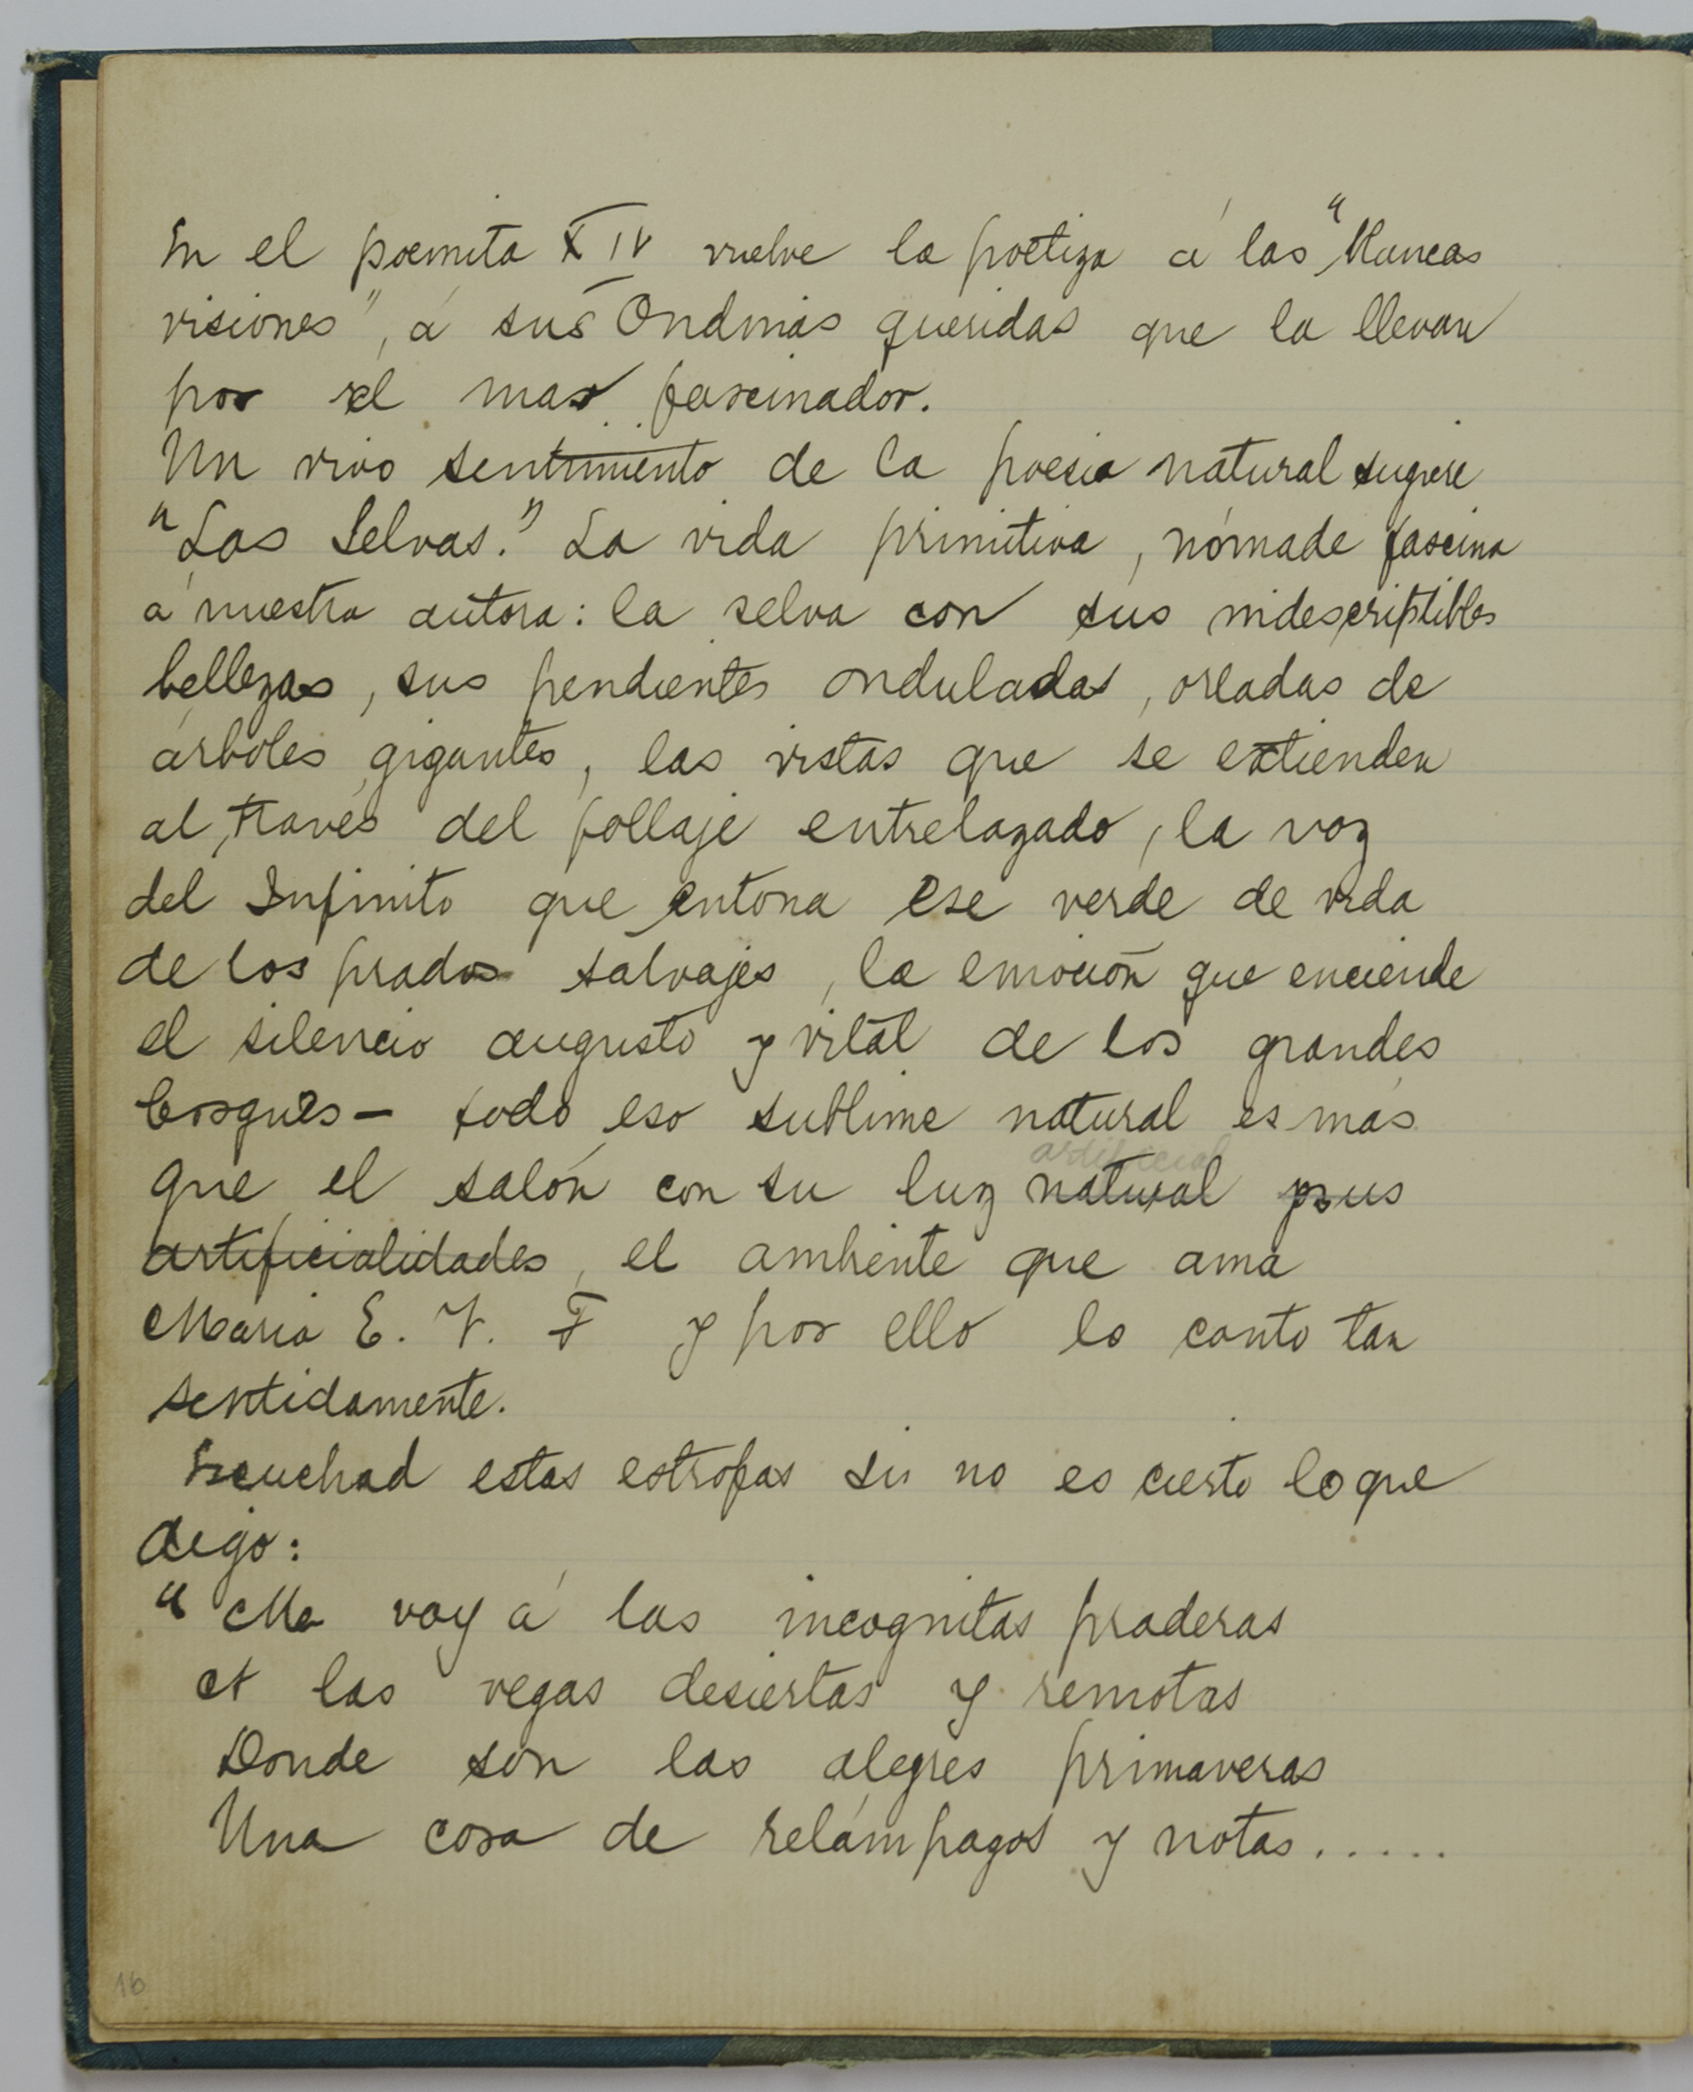 En el poemita XIV vuelve la poetiza á las "blancas
visiones", á sus Ondinas queridas que la llevan
por el mar fascinador.
Un vivo sentimiento de la poesia natural sugiere
"Las Selvas." La vida primitiva, nómade fascina
a nuestra autora: la selva con sus indescriptibles
bellezas, sus pendientes onduladas, orladas de
árboles gigantes, las vistas que se extienden
al, través del follaje entrelazado, la voz
del Infinito que entona ese verde de vida
de los prados salvajes, la emoción que enciende
el silencio augusto y vital de los grandes
bosques – todo eso sublime natural es más
que el salón con su luz natural artificial sus
artificialidades, el ambiente que ama
Maria E. V. F y por ello lo canto tan
sentidamente.
Escuchad estas estrofas si no es cierto lo que
digo:
"Me voy á las incognitas praderas
A las vegas desiertas y remotas
Donde son las alegres primaveras
Una cosa de relámpagos y notas.....
16